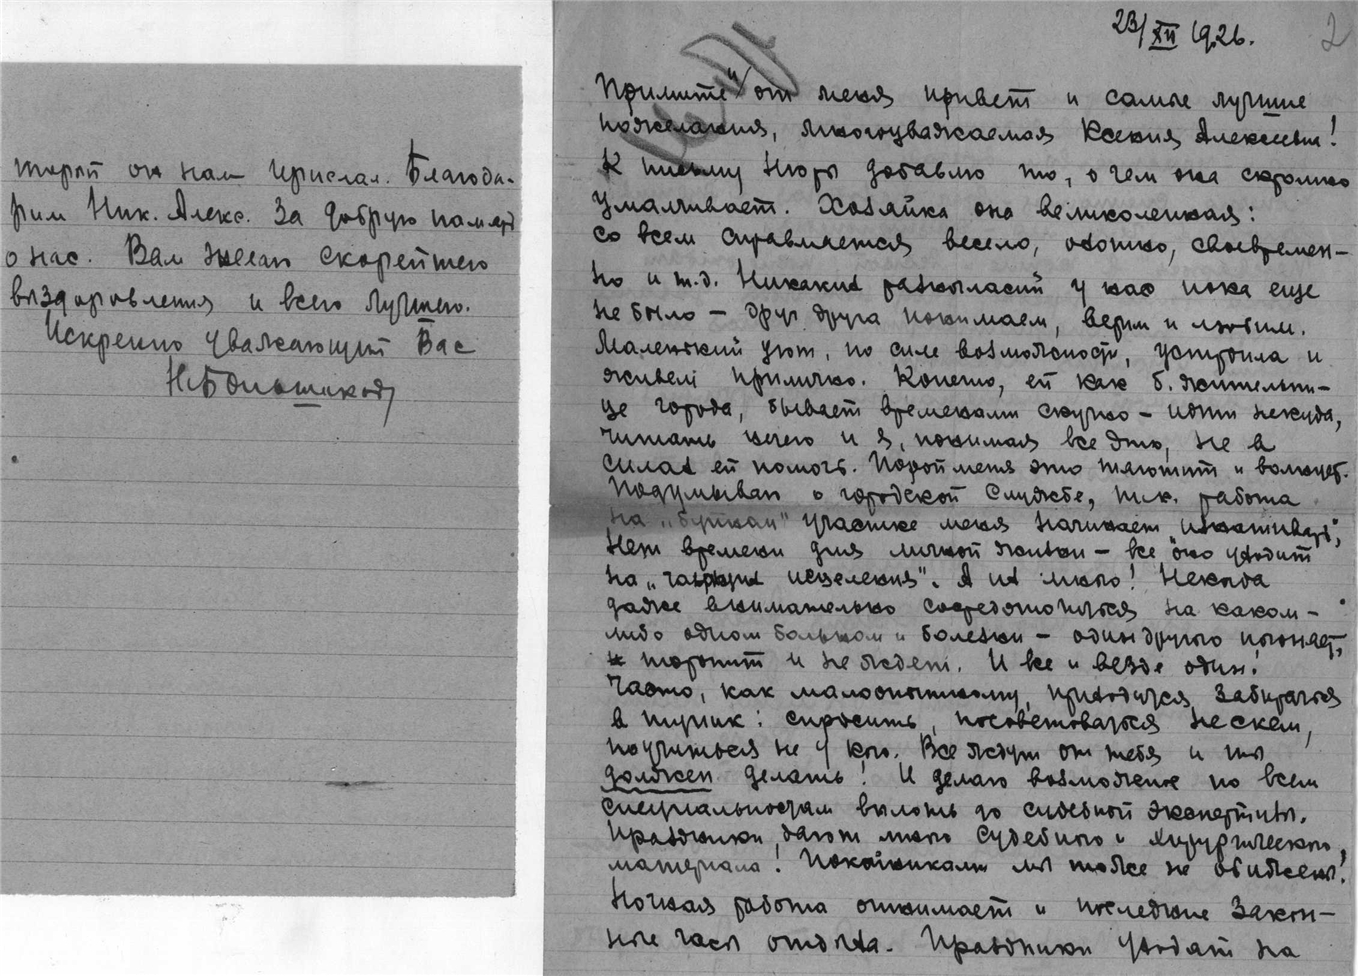 торый он нам прислал. Благода-
рим Ник. Алекс. за добрую память
о нас. Вам желаю скорейшего
выздоровления и всего лучшего.
Искренно уважающий Вас
Н. Большаков
23/XII 1926.
2
Примите и от меня привет и самые лучшие
пожелания, многоуважаемая Ксения Алексеевна!
К письму Нюры добавлю то, о чем она скромно
умалчивает. Хозяйка она великолепная:
со всем справляется весело, охотно, своевремен-
но и т.д. Никаких разногласий у нас пока еще
не было – друг друга понимаем, верим и любим.
Маленький уют, по силе возможности, устроила и
живем прилично. Конечно, ей как б. жительни-
це города, бывает временами скучно – идти некуда,
читать нечего и я, понимая все это, не в
силах ей помочь. Порой меня это тяготит и волнует.
Подумываю о городской службе, т.к. работа
на „бутном" участке меня начинает
Нет времени для личной жизни – все оно уходит
на „чающих исцеления". А их много! Некогда
даже внимательно сосредоточиться на каком-
либо одном больном и болезни – один другого погоняет,
торопит и не ждет. И все и везде один!
Часто, как малоопытному, приходится забираться
в тупик: спросить, посоветоваться не с кем,
поучиться не у кого. Все ждут от тебя и ты
должен делать! И делаю возможное по всем
специальностям вплоть до судебной экспертизы.
Праздники дают много судебного и хирургического
материала! Покойниками мы тоже не обижены!
Ночная работа отнимает и последние закон-
ные часы отдыха. Праздники уходят на